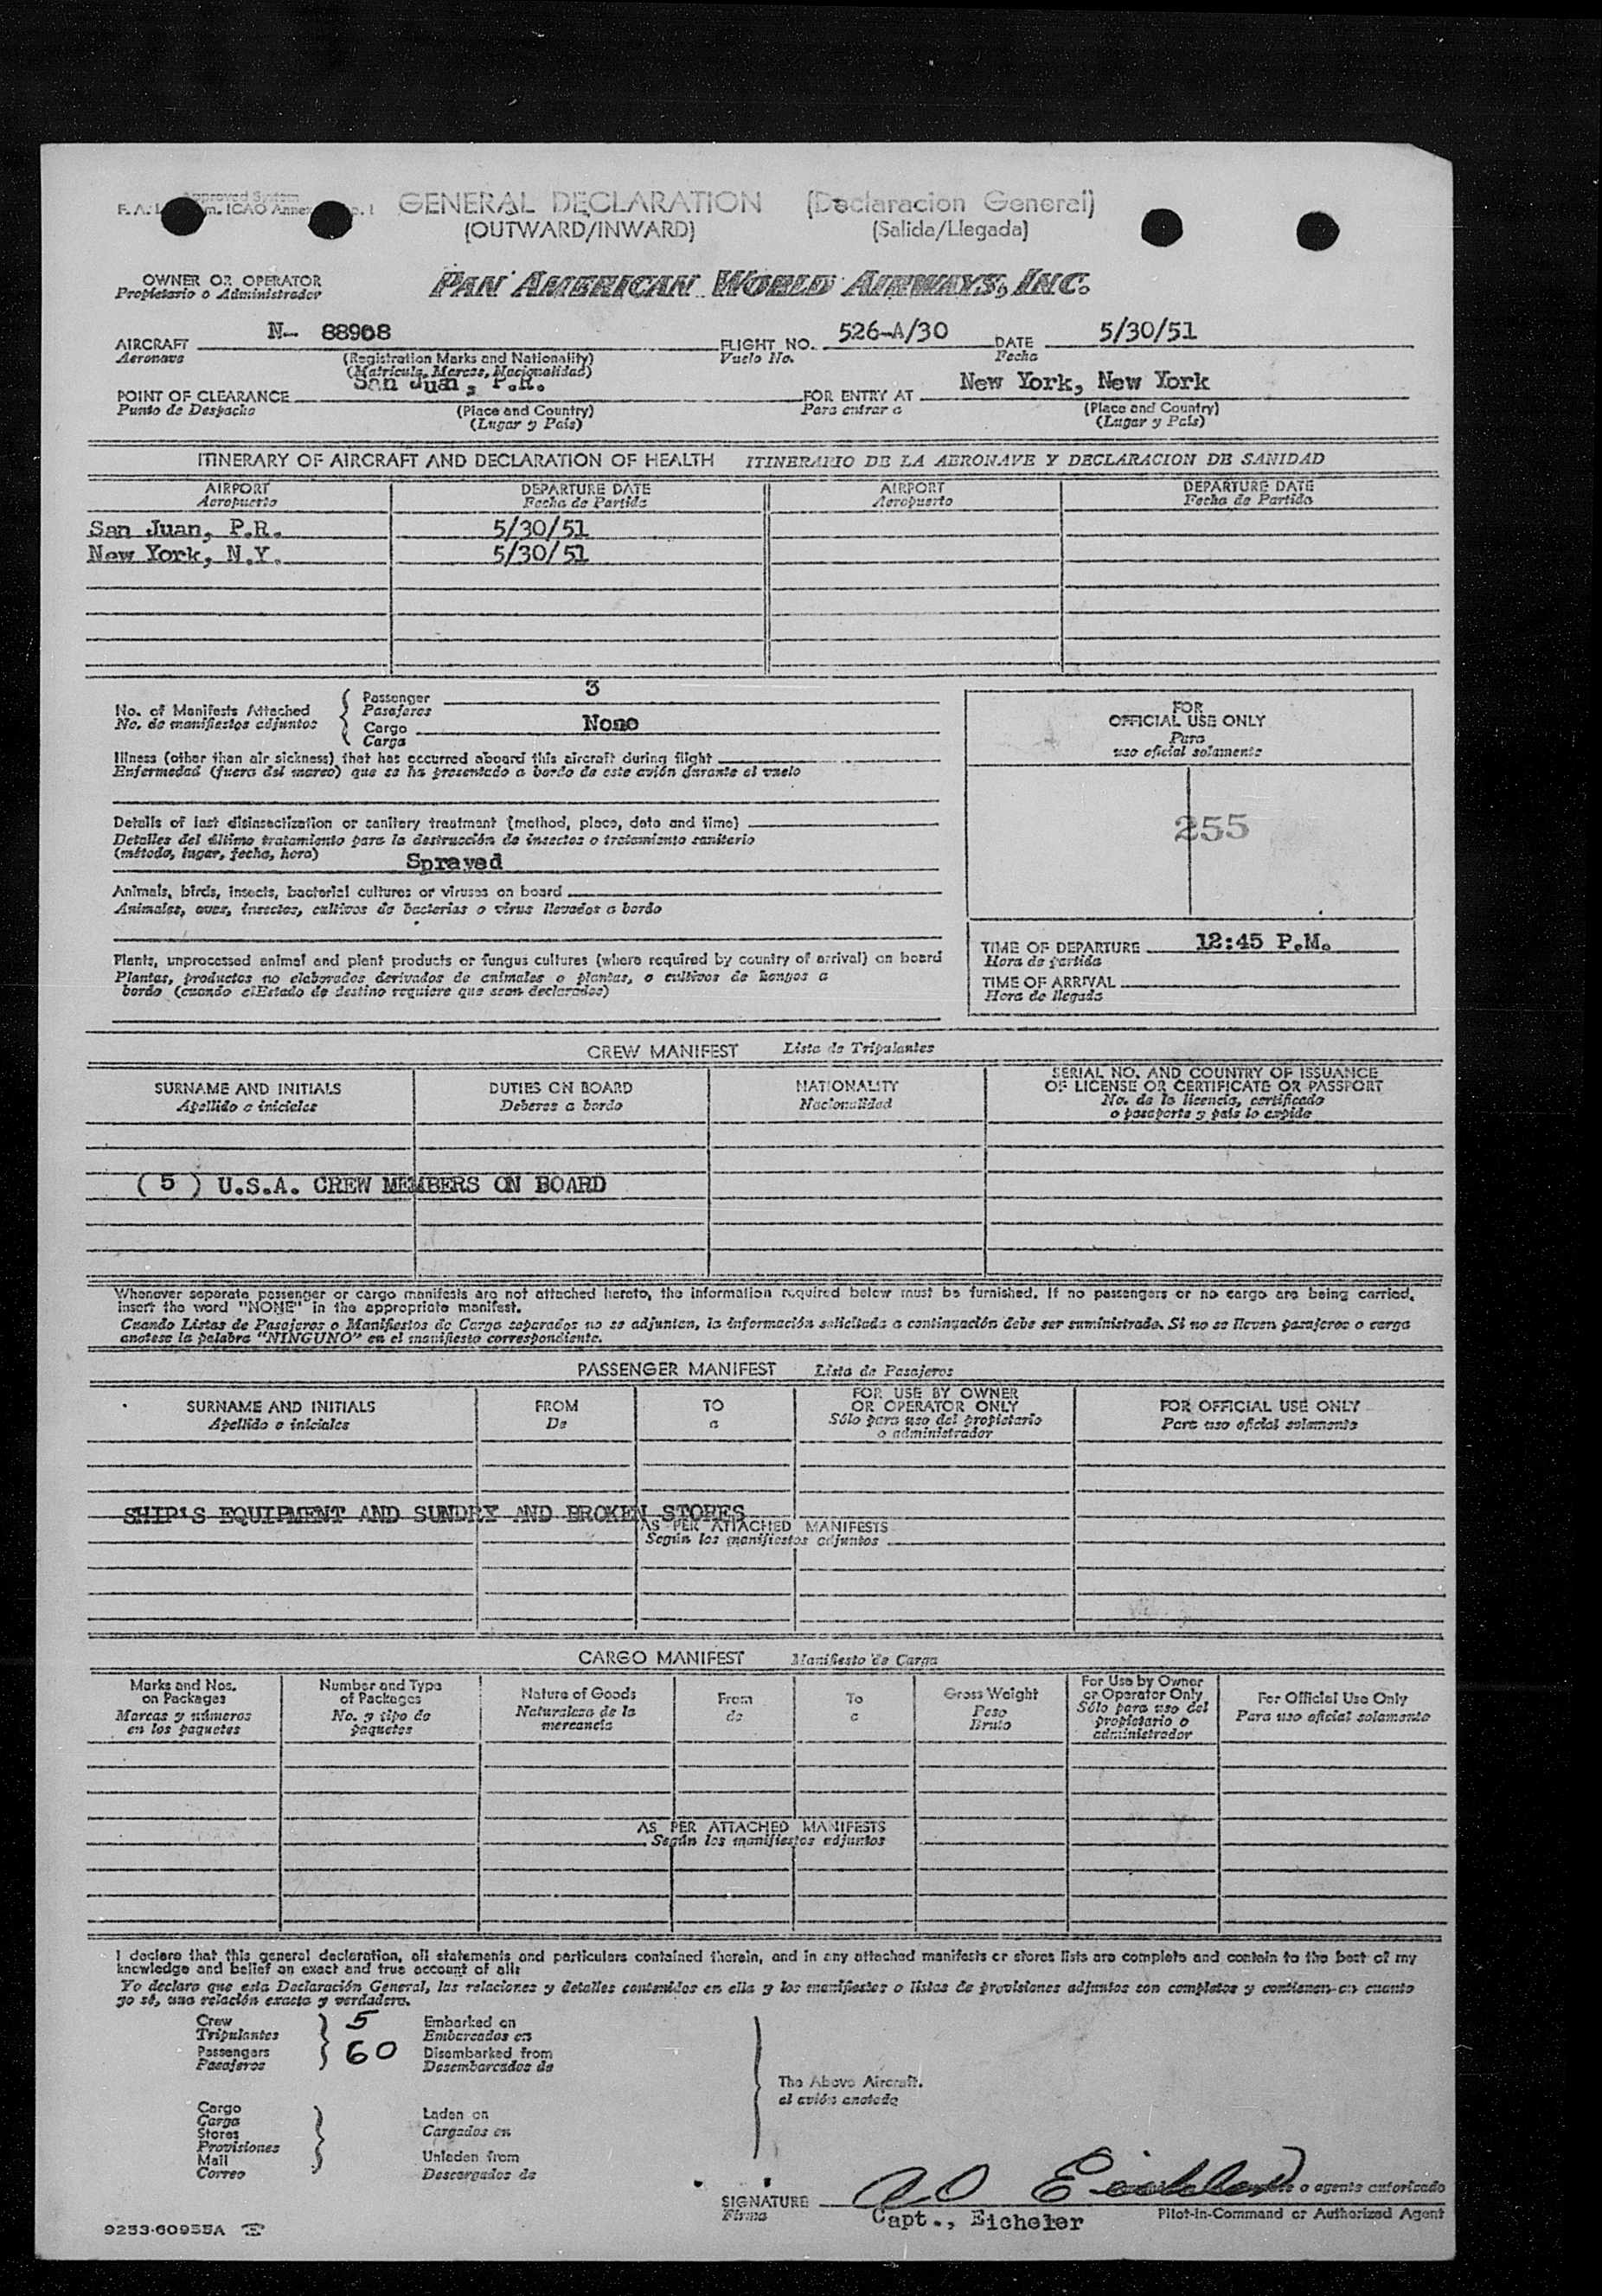 Approved System
GENERAL DECLARATION (Declaracion General)
(OUTWARD/INWARD) (Salida/Llegada)
OWNER OR OPERATOR PAN AMERICAN WORLD AIRWAYS, INC.
Propietario o Administrador
AIRCRAFT N- 88908 FLIGHT NO. 526-A/30 DATE 5/30/51
Aeronave (Registration Marks and Nationality) Vuelo No. Fecha
(Matricula, Marcas, Nacionalidad)
POINT OF CLEARANCE San Juan, P.R. FOR ENTRY AT New York, New York
Punto de Despacho (Place and Country) Para entrar a (Place and Country)
(Lugar y País) (Lugar y País)
ITINERARY OF AIRCRAFT AND DECLARATION OF HEALTH ITINERARIO DE LA AERONAVE Y DECLARACION DE SANIDAD
AIRPORT DEPARTURE DATE AIRPORT DEPARTURE DATE
Aeropuerto Fecha de Partida Aeropuerto Fecha de Partida
San Juan, P.R. 5/30/51
New York, N.Y. 5/30/51
No. of Manifests Attached Passenger 3
No. de manifiestos adjuntos Pasajeros
Cargo None
Carga
FOR
OFFICIAL USE ONLY
Para
uso oficial solamente
Illness (other than air sickness) that has occurred aboard this aircraft during flight
Enfermedad (fuera del mareo) que se ha presentado a bordo de este avión durante el vuelo
255
Details of last disinsectization or sanitary treatment (method, place, date and time)
Detalles del último tratamiento para la destrucción de insectos o tratamiento sanitario
(método, lugar, fecha, hora) Sprayed
Animals, birds, insects, bacterial cultures or viruses on board
Animales, aves, insectos, cultivos de bacterias o virus llevados a bordo
Plants, unprocessed animal and plant products or fungus cultures (where required by country of arrival) on board
Plantas, productos no elaborados derivados de animales o plantas, o cultivos de hongos a
bordo (cuando elEstado de destino requiere que sean declarados)
TIME OF DEPARTURE 12:45 P.M.
Hora de partida
TIME OF ARRIVAL
Hora de llegada
CREW MANIFEST Lista de Tripulantes
SURNAME AND INITIALS DUTIES ON BOARD NATIONALITY SERIAL NO. AND COUNTRY OF ISSUANCE
OF LICENSE OR CERTIFICATE OR PASSPORT
Apellido e iniciales Deberes a bordo Nacionalidad No. de la licencia, certificado
o pasaporte y país lo expide
( 5 ) U.S.A. CREW MEMBERS ON BOARD
Whenever separate passenger or cargo manifests are not attached hereto, the information required below must be furnished. If no passengers or no cargo are being carried,
insert the word "NONE" in the appropriate manifest.
Cuando Listas de Pasajeros o Manifiestos de Carga separados no se adjuntan, la información solicitada a continuación debe ser suministrada. Si no se lleven pasajeros o carga
anotese la palabra "NINGUNO" en el manifiesto correspondiente.
PASSENGER MANIFEST Lista de Pasajeros
SURNAME AND INITIALS FROM TO FOR USE BY OWNER
OR OPERATOR ONLY FOR OFFICIAL USE ONLY
Apellido e iniciales De a Sólo para uso del propietario
o administrador Para uso oficial solamente
SHIP'S EQUIPMENT AND SUNDRY AND BROKEN STORES
AS PER ATTACHED MANIFESTS
Según los manifiestos adjuntos
CARGO MANIFEST Manifiesto de Carga
Marks and Nos.
on Packages
Marcas y números
en los paquetes
Number and Type
of Packages
No. y tipo de
paquetes
Nature of Goods
Naturaleza de la
mercancía
From
de
To
a
Gross Weight
Peso
Bruto
For Use by Owner
or Operator Only
Sólo para uso del
propietario o
administrador
For Official Use Only
Para uso oficial solamente
AS PER ATTACHED MANIFESTS
Según los manifiestos adjuntos
I declare that this general declaration, all statements and particulars contained therein, and in any attached manifests or stores lists are complete and contain to the best of my
knowledge and belief an exact and true account of all:
Yo declaro que esta Declaración General, las relaciones y detalles contenidos en ella y los manifiestos o listas de provisiones adjuntos son completos y contienen en cuanto
yo sé, una relación exacta y verdadera.
Crew 5 Embarked on
Tripulantes Embarcados en
Passengers 60 Disembarked from
Pasajeros Desembarcados de
The Above Aircraft.
el avión anotado
Cargo Laden on
Carga Cargados en
Stores
Provisiones
Mail Unladen from
Correo Descargados de
SIGNATURE o agente autorizado
Firma Capt., Eicheler Pilot-in-Command or Authorized Agent
9253-60955A